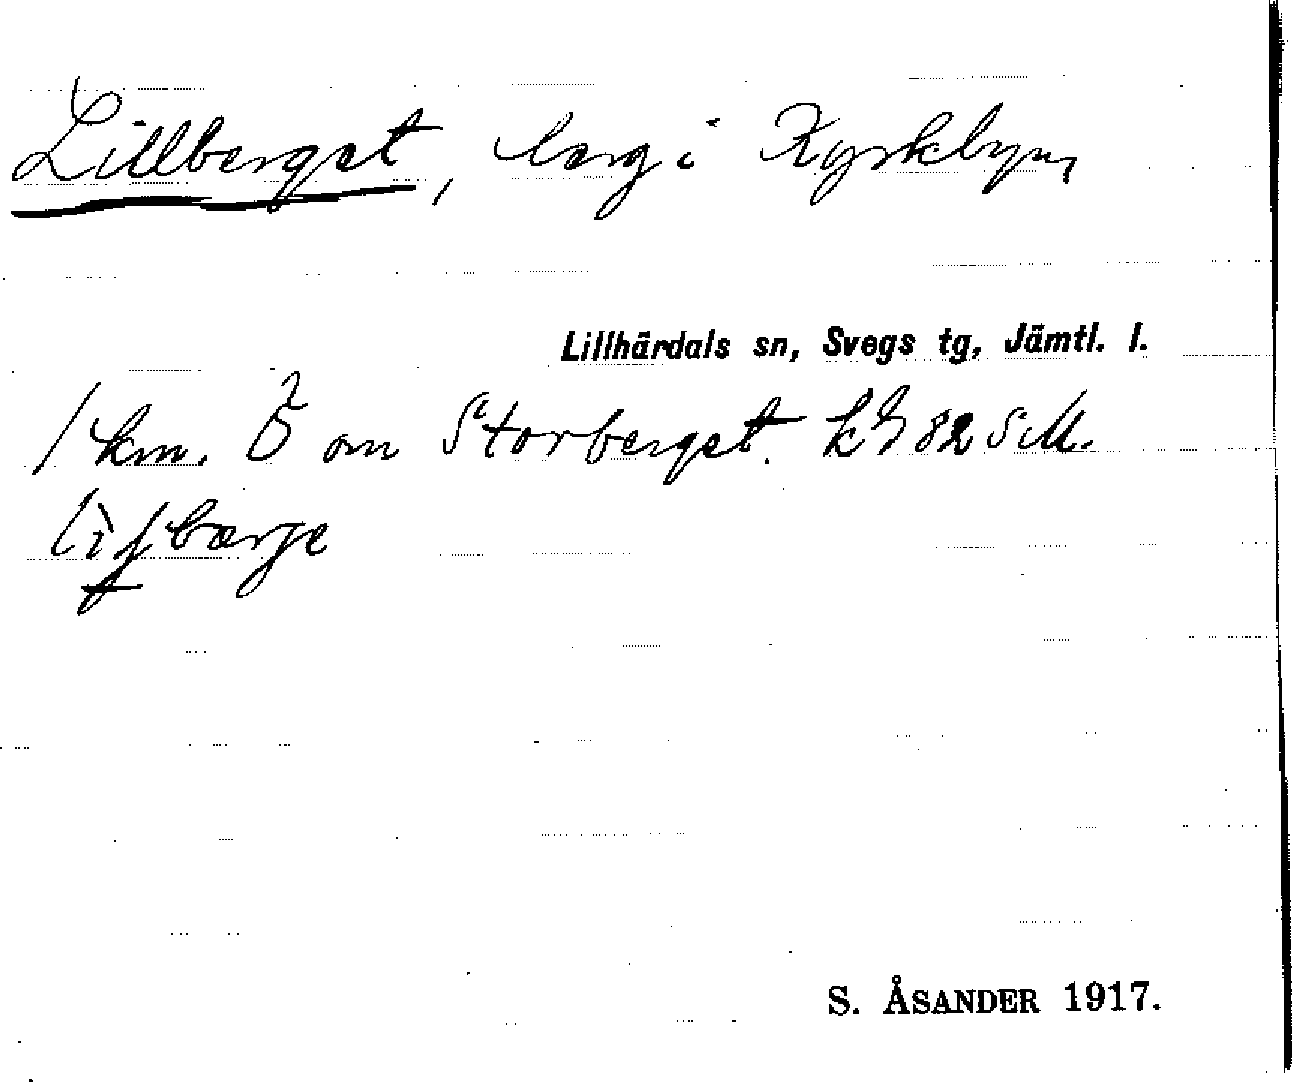 Lillberget, berg i Kyrkbyn,
Lillhärdals sn, Svegs tg, Jämtl. l.
1 km. Ö om Storberget. k 82 S.M.
S. ÅSANDER 1917.